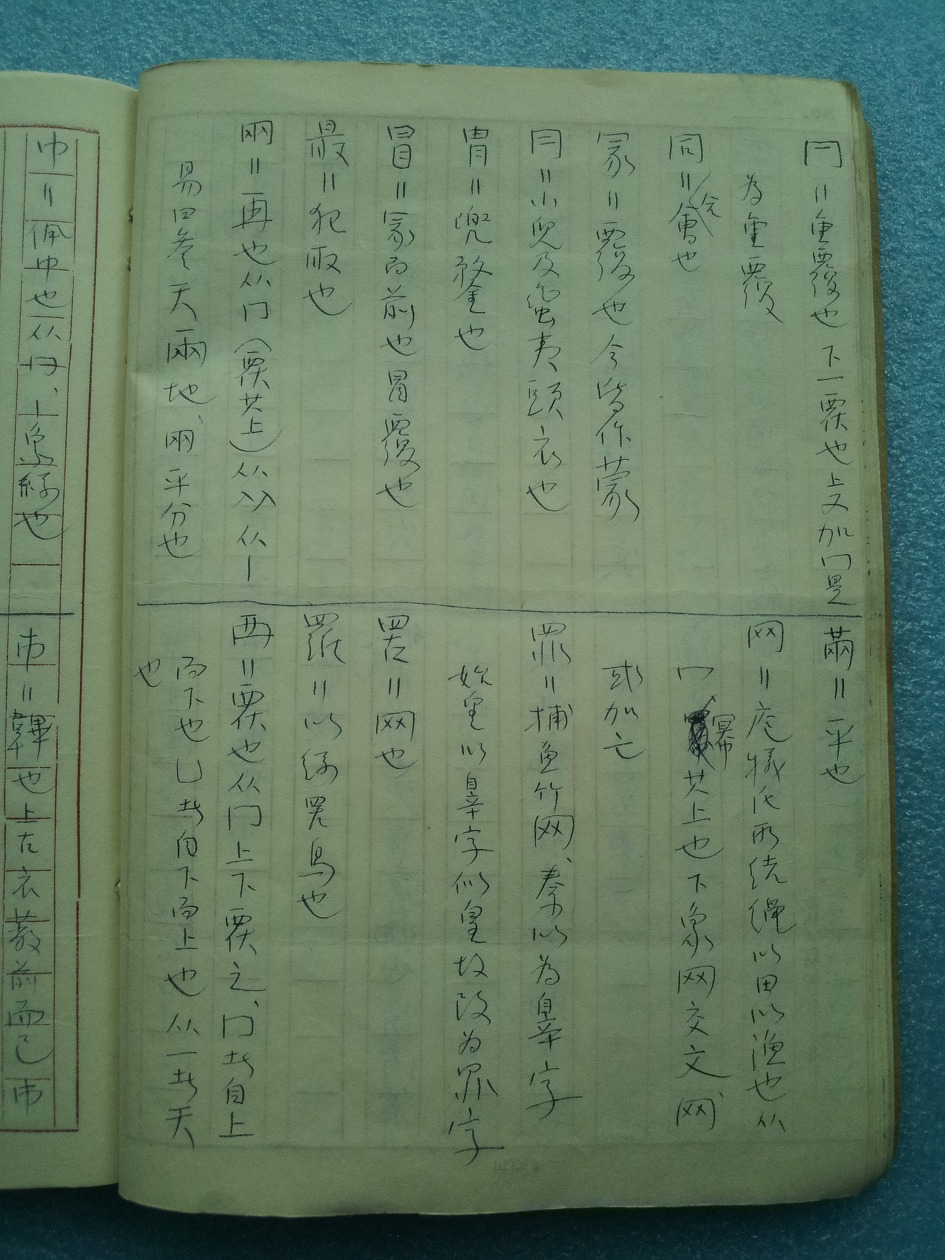 𠔼＝重覆也 下一覆也上又加冂是
為重覆
同＝會也
冡＝覆也 今皆作蒙
冃＝小兒及蠻夷頭衣也
冑＝兜鍪也
冒＝冡而前也 冒覆也
最＝犯取也
㒳＝再也从冂（覆其上）从入入从丨
易曰參天㒳地、㒳平分也
㒼＝平也
网＝庖犧氏所结绳以田以漁也 从
冖、冪其上也 下象网交文 网
或加亡
罪＝捕鱼竹网、秦以為辠字
始皇以辠字似皇故改为罪字
罟＝网也
羅＝以絲罟鳥也
襾＝覆也从冂上下覆之、冂者自上
而下也凵者自下而上也 从一者天
也
巾＝佩巾也从冂、丨象絲也
巿＝韠也上古衣蔽前而已巿